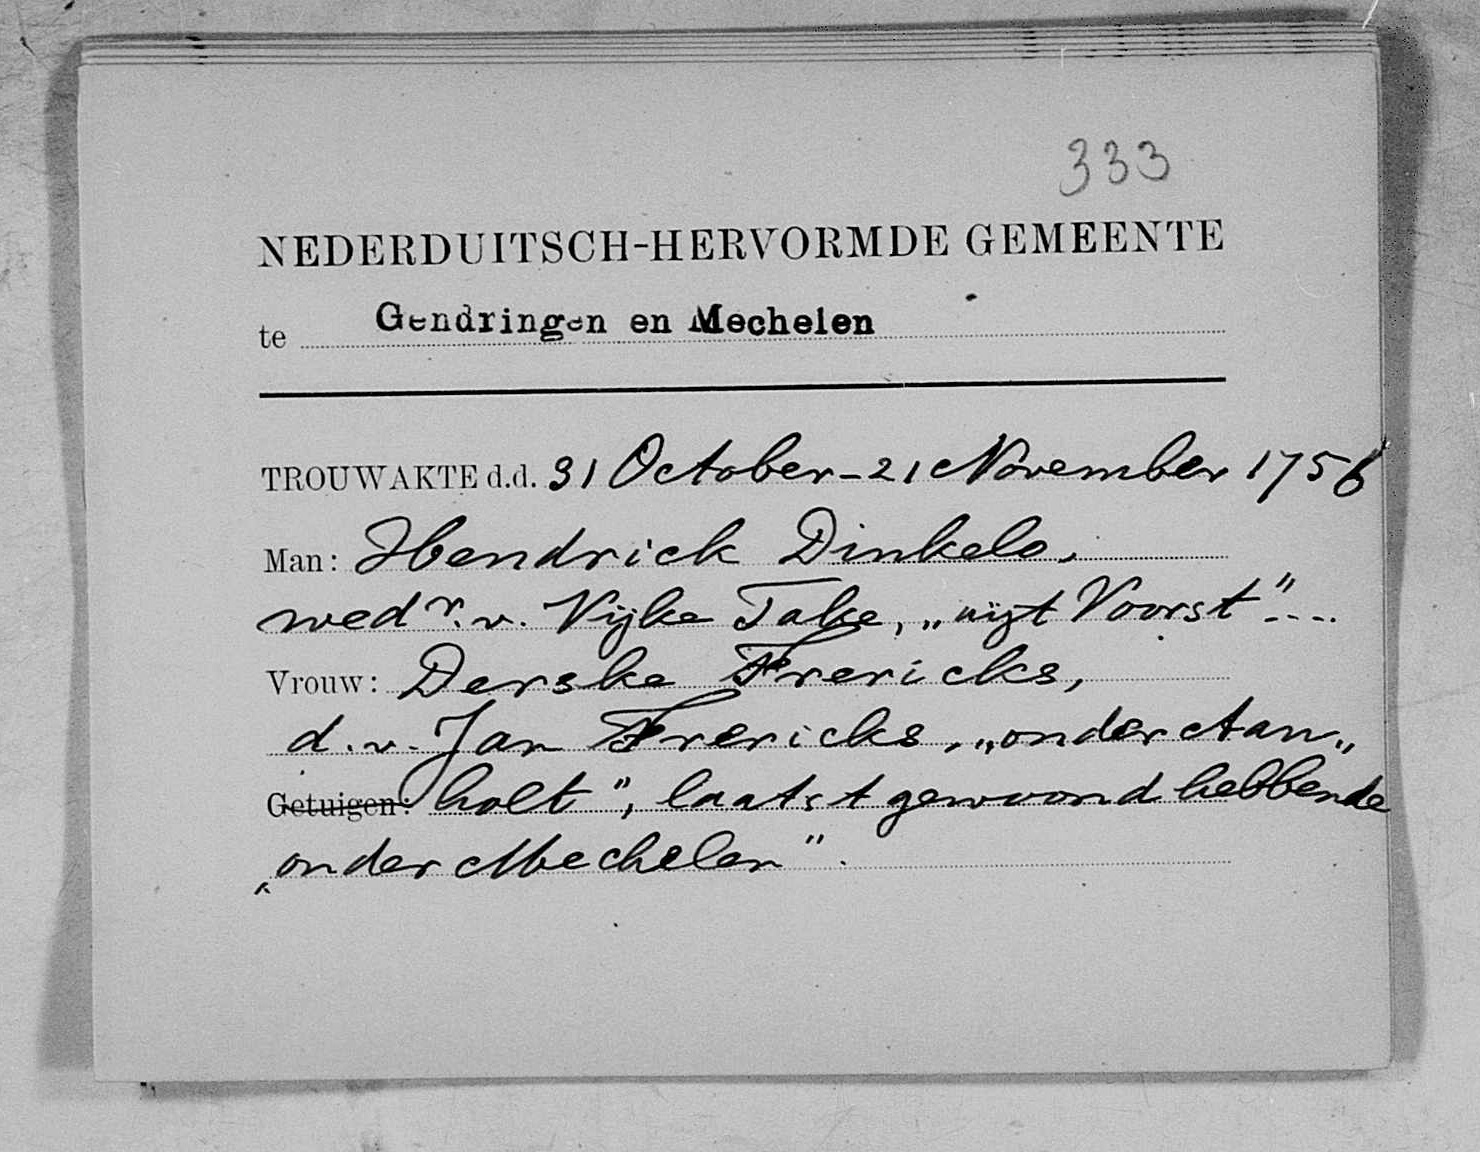 333
NEDERDUITSCH-HERVORMDE GEMEENTE
te Gendringen en Mechelen
TROUWAKTE d.d. 31 October - 21 November 1756
Man: Hendrick Dinkelo,
wedr. v. Vijke Take, „uijt Voorst"...
Vrouw: Derske Frericks,
d.v. Jan Frericks, „onder Aan„
Getuigen: holt", laatst gewoond hebbende
„onder Mechelen".